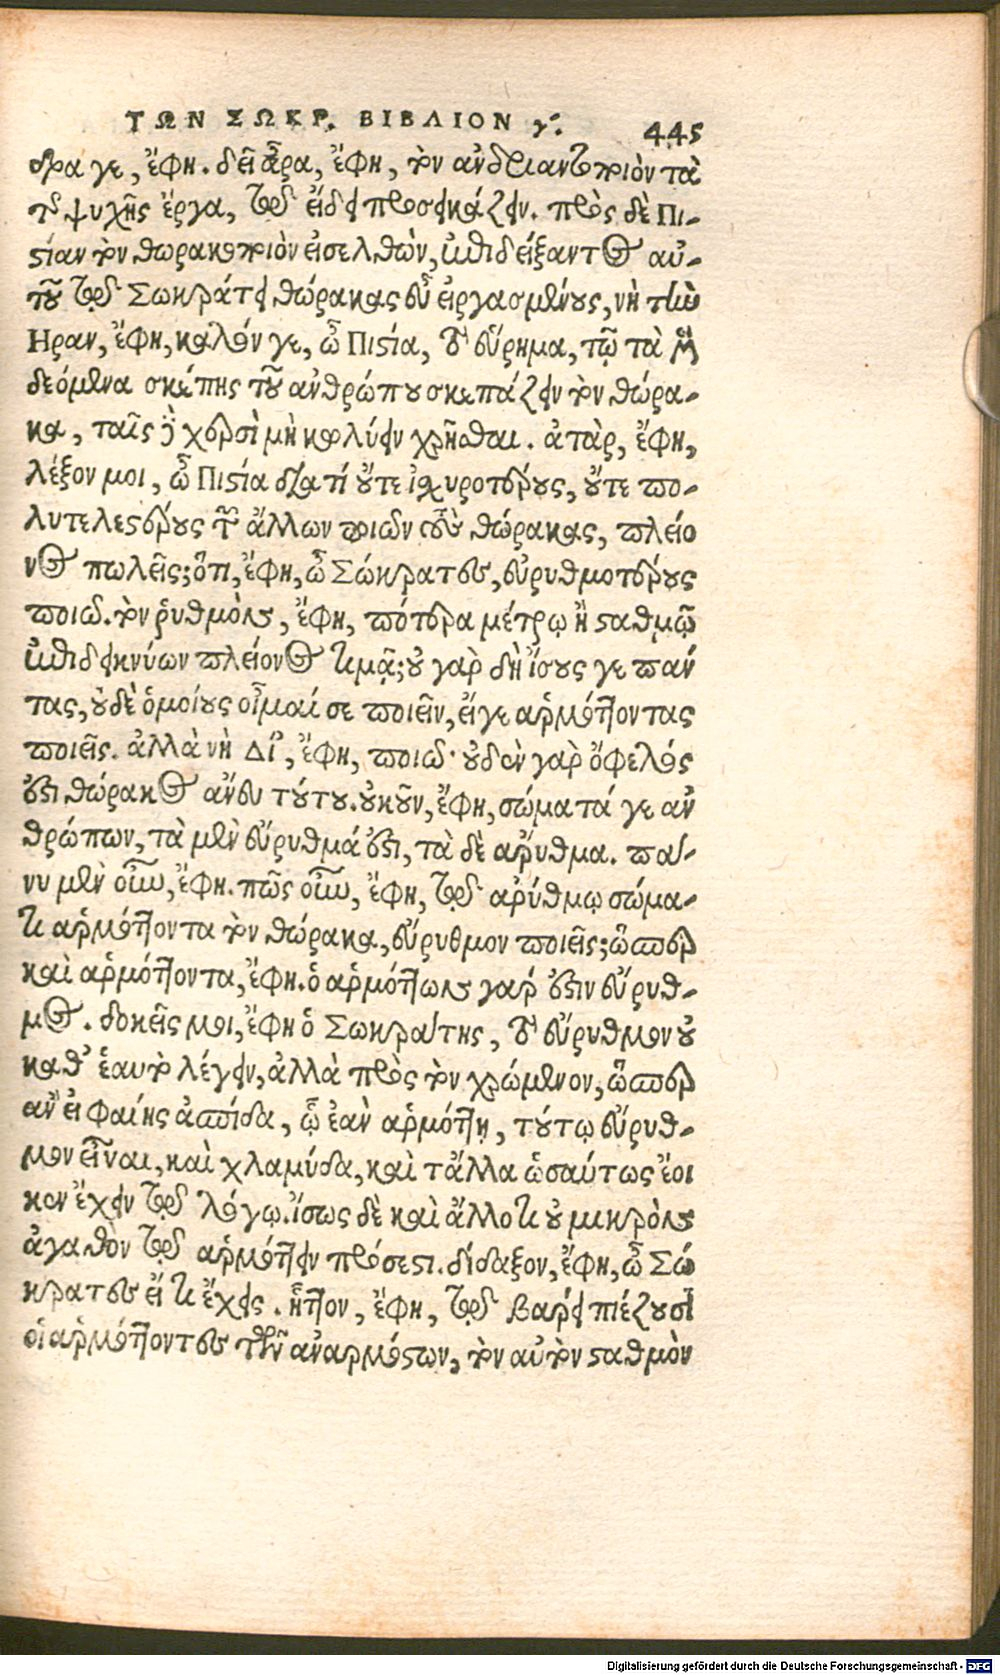 ΤΩΝ ΣΩΚΡ. ΒΙΒΛΙΟΝ γ'. 445
δρα γε, ἔφη. δεῖ ἄρα, ἔφη, τὸν ἀνδριαντοποιὸν τὰ
τῆς ψυχῆς ἔργα, τῷ εἴδει προσεικάζειν. πρὸς δὲ Πι-
στίαν τὸν θωρακοποιὸν εἰσελθὼν, ἐπιδείξαντος αὐ-
τοῦ τῷ Σωκράτει θώρακας εὖ εἰργασμένους, νὴ τὴν
Ηραν, ἔφη, καλόν γε, ὦ Πιστία, τὸ εὕρημα, τῷ τὰ μὲν
δεόμενα σκέπης τοῦ ἀνθρώπου σκεπάζειν τὸν θώρα-
κα, ταῖς δὲ χερσὶ μὴ κωλύειν χρῆσθαι. ἀτὰρ, ἔφη,
λέξον μοι, ὦ Πιστία διατί οὔτε ἰσχυροτέρους, οὔτε πο-
λυτελεστέρους τῶν ἄλλων ποιῶν τοὺς θώρακας, πλείο
νος πωλεῖς; ὅτι, ἔφη, ὦ Σώκρατες, εὐρυθμοτέρους
ποιῶ. τὸν ῥυθμὸν, ἔφη, πότερα μέτρῳ ἢ σταθμῷ
ἐπιδεικνύων πλείονος τιμᾷ; οὐ γὰρ δὴ ἴσους γε πάν
τας, οὐδὲ ὁμοίους οἶμαί σε ποιεῖν, εἴγε ἁρμόττοντας
ποιεῖς. ἀλλὰ νὴ Δί', ἔφη, ποιῶ· οὐδὲν γὰρ ὄφελός
ἐστι θώρακος ἄνευ τούτου. οὐκοῦν, ἔφη, σώματά γε ἀν
θρώπων, τὰ μὲν εὔρυθμά ἐστι, τὰ δὲ ἄρυθμα. πά-
νυ μὲν οὖν, ἔφη. πῶς οὖν, ἔφη, τῷ ἀρύθμῳ σώμα-
τι ἁρμόττοντα τὸν θώρακα, εὔρυθμον ποιεῖς; ὥσπερ
καὶ ἁρμόττοντα, ἔφη. ὁ ἁρμόττων γάρ ἐστιν εὔρυθ-
μος. δοκεῖς μοι, ἔφη ὁ Σωκράτης, τὸ εὔρυθμον οὐ
καθ' ἑαυτὸ λέγειν, ἀλλὰ πρὸς τὸν χρώμενον, ὥσπερ
ἂν εἰ φαίης ἀσπίδα, ᾧ ἐὰν ἁρμόττῃ, τούτῳ εὔρυθ-
μον εἶναι, καὶ χλαμύδα, καὶ τἄλλα ὡσαύτως ἔοι
κεν ἔχειν τῷ λόγῳ. ἴσως δὲ καὶ ἄλλο τι οὐ μικρὸν
ἀγαθὸν τῷ ἁρμόττειν πρόσεστι. δίδαξον, ἔφη, ὦ Σώ
κρατες εἴ τι ἔχεις. ἧττον, ἔφη, τῷ βάρει πιέζουσι
οἱ ἁρμόττοντες τῶν ἀναρμόστων, τὸν αὐτὸν σταθμὸν
Digitalisierung gefördert durch die Deutsche Forschungsgemeinschaft - DFG